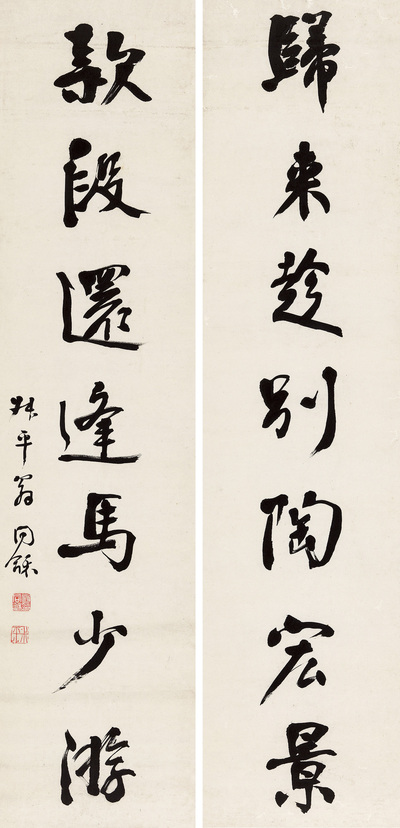 歸來趁別陶宏景
款段還逢馬少游
叔平翁同龢